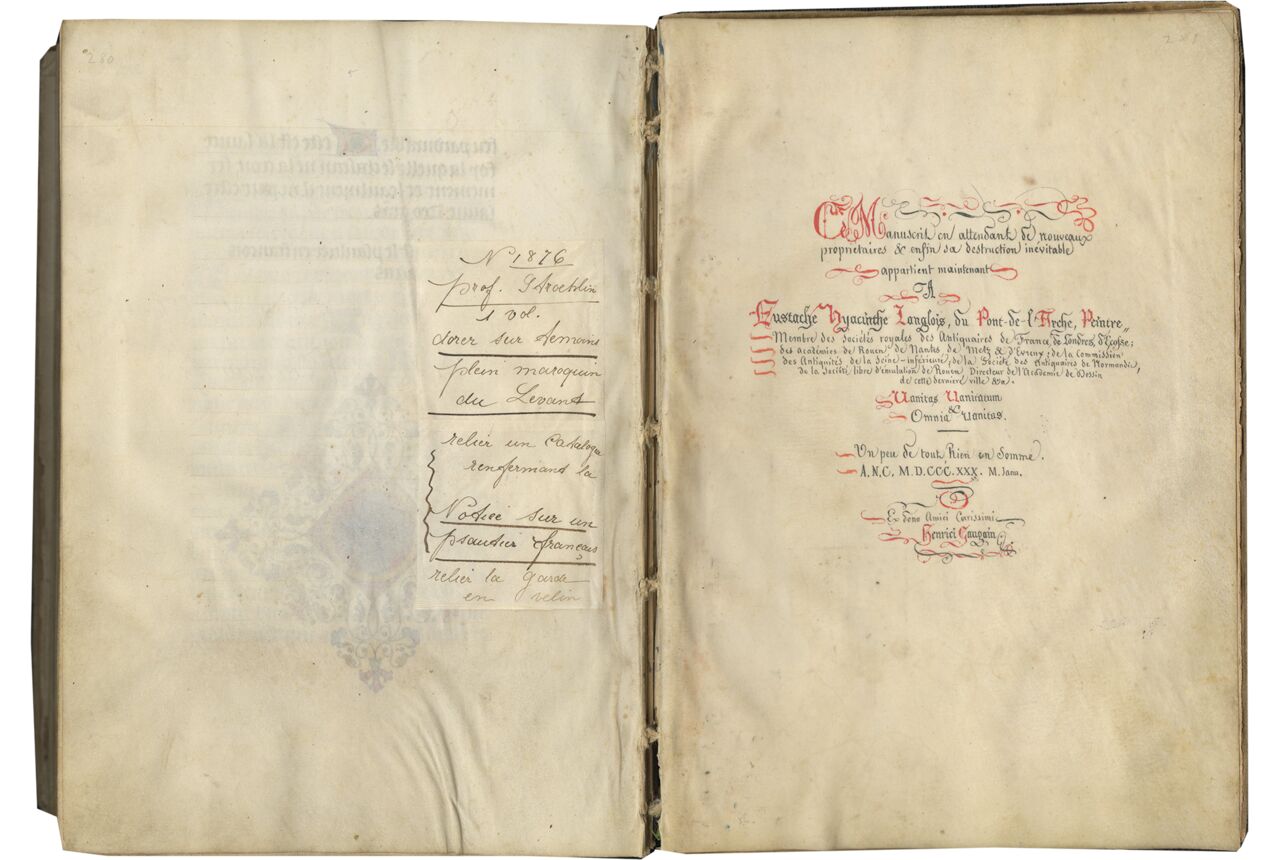 280
N° 1876
prof. Stroehlin
1 vol.
dorer sur temoins
plein maroquin
du Levant
relier un Catalogue
renfermant la
Notice sur un
psautier français
relier la garde
en velin
281
Ce Manuscrit en attendant de nouveaux
proprietaires & enfin sa destruction inévitable
appartient maintenant
A
Eustache Hyacinthe Langlois, du Pont-de-l'Arche, Peintre,,
Membre des Sociétés royales des Antiquaires de France, de Londres, d'Ecosse;
des académies de Rouen, de Nantes de Metz & d'Evreux; de la Commission
des Antiquités de la Seine-inférieure, de la Société des Antiquaires de Normandie,
de la Société libre d'émulation de Rouen, Directeur de l'Académie de Dessin
de cette derniere ville &a.
Vanitas Vanitatum
&
Omnia Vanitas.
Un peu de tout, Rien en Somme.
A.N.C. M.D.CCC.XXX. M. Janu.
Ex dono Amici Carissimi
Henrici Gaugain